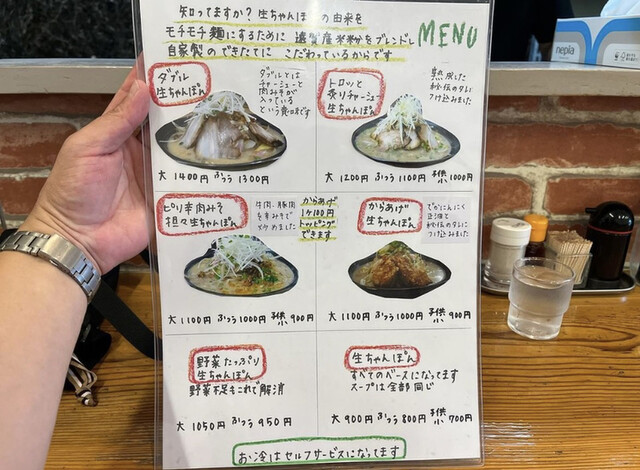 知ってますか？生ちゃんぽんの由来を
モチモチ麺にするために遠賀産米粉をブレンドし
自家製のできたてにこだわっているからです
MENU
ダブル
生ちゃんぽん
ダブルとは
チャーシューと
肉みそが
入っている
という意味です
大1400円 ふつう1300円
トロッと
炙りチャーシュー
生ちゃんぽん
熟成した
秘伝のタレに
つけ込みました
大1200円 ふつう1100円 子供1000円
ピリ辛肉みそ
担々生ちゃんぽん
牛肉、豚肉
を辛みそで
炒めました
からあげ
1ケ100円
トッピング
できます
大1100円 ふつう1000円 子供900円
からあげ
生ちゃんぽん
でかにんにく
正油と
秘伝のタレに
つけ込みました
大1100円 ふつう1000円 子供900円
野菜たっぷり
生ちゃんぽん
野菜不足もこれで解消
大1050円 ふつう950円
生ちゃんぽん
すべてのベースになってます
スープは全部同じ
大900円 ふつう800円 子供700円
お冷はセルフサービスになってます
nepia